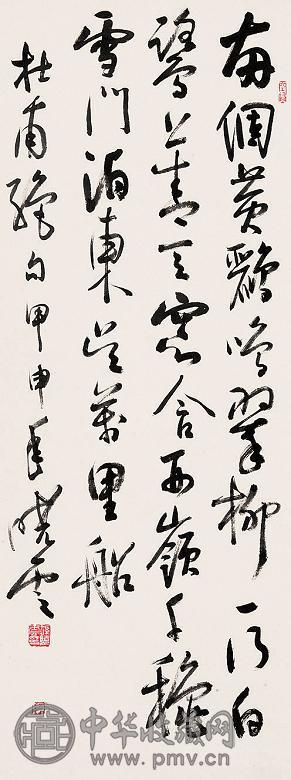 两個黄鸝鳴翠柳一行白
鷺上青天窓含西嶺千秋
雪門泊東吴萬里船
杜甫絶句甲申年曉雲
中华收藏网
www.pmv.cn